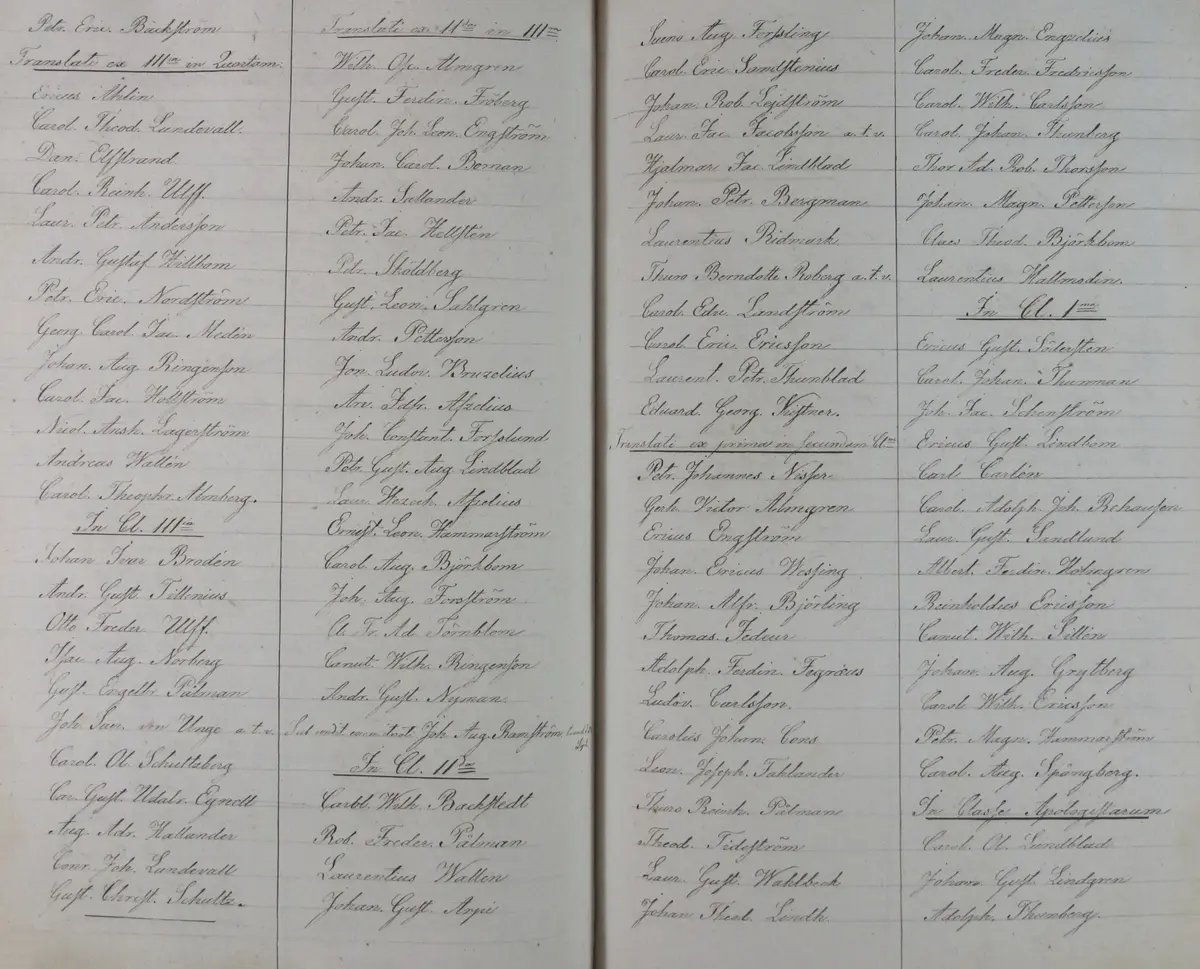 Petr. Eric. Bäckström
Translati ex III:ia in Quartam.
Ericus Ahlin
Carol. Theod. Lundevall.
Dan. Elfstrand
Carol. Reinh. Ulff.
Laur. Petr. Andersson
Andr. Gustaf Willbom
Petr. Eric. Nordström
Georg Carol. Jac. Medin
Johan. Aug. Ringenson
Carol. Jac. Hollström
Nicol. Ansh. Lagerström
Andreas Wallin
Carol. Theophr. Almberg.
In Cl. III:ia
Johan Ivar Brodén
Andr. Gust. Tillenius
Otto Freder. Ulff.
Isac. Aug. Norberg
Gust. Engelb. Pålman
Joh. von Unge a. t. v.
Carol. Ol. Schultzberg
Car. Gust. Udalr. Egnell
Aug. Adr. Hallander
Conr. Joh. Lundevall
Gust. Christ. Schultz.
Translati ex II:da in III:am
Wilh. Ol. Almgren
Gust. Ferdin. Fröberg
Carol. Joh. Leon. Engström
Johan. Carol. Boman
Andr. Sallander
Petr. Jac. Hellsten
Petr. Sköldberg
Gust. Leon. Sahlgren
Andr. Petterson
Jon. Ludov. Bruzelius
Ari. Afzelius
Joh. Constant. Forsslund
Petr. Gust. Aug. Lindblad
Laur. Afzelius
Ernst. Leon. Hammarström
Carol. Aug. Björkbom
Joh. Aug. Forsström
Ol. Fr. Ad. Törnblom
Canut. Wilh. Ringenson
Andr. Gust. Nyman
Joh. Aug. Ramström
In Cl. II:da
Carol. Wilh. Backstedt
Rob. Freder. Pålman
Laurentius Wallin
Johan. Gust. Arpi
Sueno Aug. Forssling
Carol. Eric. Sandstenius
Johan. Rob. Leijström
Laur. Jac. Jacobsson a. t. v.
Hjalmar Jac. Lindblad
Johan. Petr. Bergman
Laurentius Ridmark
Thuro Berndotte Roberg a. t. v.
Carol. Edv. Landström
Carol. Eric. Ericsson
Laurent. Petr. Thunblad
Eduard. Georg. Kistner.
Translati ex prima in secundam Cl.
Petr. Johannes Nisser
Gerh. Victor Almgren
Ericus Engström
Johan. Ericus Wessing
Johan. Alfr. Björling
Thomas. Fedeur
Adolph. Ferdin. Fegræus
Ludov. Carlsson.
Carolus Johan. Cons
Leon. Joseph. Fahlander
Thuro Reinh. Pålman
Theod. Tideström
Laur. Gust. Wahlbeck
Johan Theod. Lindh.
Johan. Magn. Engzelius
Carol. Freder. Fredricsson
Carol. Wilh. Carlsson
Carol. Johan. Thunberg
Thor Ad. Rob. Thorsson
Johan. Magn. Petterson
Claes Theod. Björkbom
Laurentius Hallmodin.
In Cl. 1:ma
Ericus Gust. Södersten
Carol. Johan. Thunman
Joh. Jac. Schenström
Ericus Gust. Lindbom
Carl Carlén
Carol. Adolph. Joh. Rohansson
Laur. Gust. Sandlund
Albert. Ferdin. Holmgren
Reinholdus Ericsson
Canut. Wilh. Sillén
Johan. Aug. Grytberg
Carol. Wilh. Ericsson
Petr. Magn. Hammarström
Carol. Aug. Spångberg.
In Classe Apologistarum
Carol. Ol. Lundblad
Johan. Gust. Lindgren
Adolph. Thunberg.